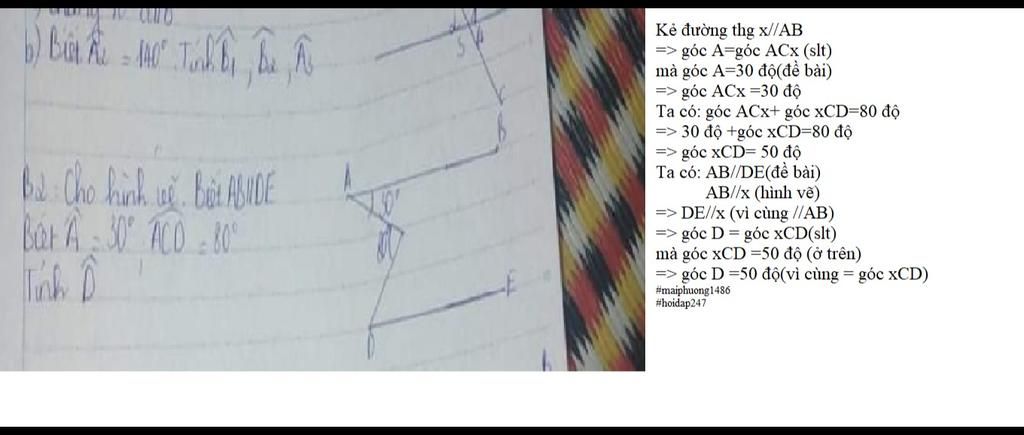 b) Biết Â₂ = 140°. Tính B̂₁, B̂₂, Â₃
B2: Cho hình vẽ. Biết AB//DE
Biết Â = 30° ACD = 80°
Tính D̂
A
B
30°
80°
E
D
Kẻ đường thg x//AB
=> góc A=góc ACx (slt)
mà góc A=30 độ(đề bài)
=> góc ACx =30 độ
Ta có: góc ACx+ góc xCD=80 độ
=> 30 độ +góc xCD=80 độ
=> góc xCD= 50 độ
Ta có: AB//DE(đề bài)
AB//x (hình vẽ)
=> DE//x (vì cùng //AB)
=> góc D = góc xCD(slt)
mà góc xCD =50 độ (ở trên)
=> góc D =50 độ(vì cùng = góc xCD)
#maiphuong1486
#hoidap247